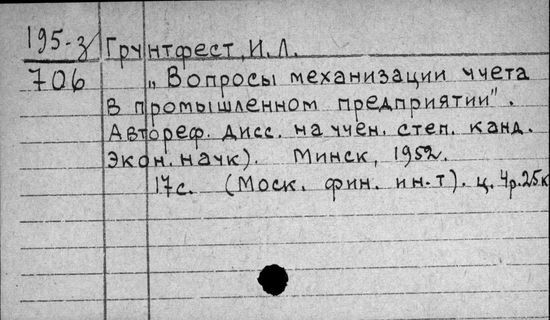 195-з Грунтфест, И.Л.
706 „Вопросы механизации учета
в промышленном предприятии".
Автореф. дисс. на учен. степ. канд.
Экон. наук). Минск, 1952.
17с. (Моск. фин. ин-т). ц. 4р.25к